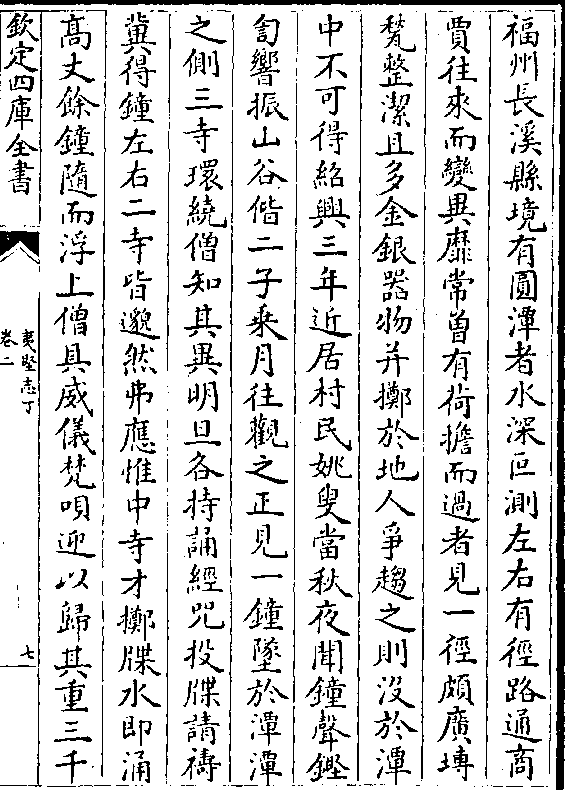 福州長溪縣境有圓潭者水深叵測左右有徑路通商
賈往來而變異靡常曽有荷擔而過者見一徑頗廣塼
甃整潔且多金銀器物并擲於地人爭趨之則沒於潭
中不可得紹興三年近居村民姚叟當秋夜聞鐘聲鏗
訇響振山谷偕二子乗月往觀之正見一鐘墜於潭潭
之側三寺環繞僧知其異明旦各持誦經咒投牒請禱
冀得鐘左右二寺皆邈然弗應惟中寺才擲牒水即涌
髙丈餘鐘隨而浮上僧具威儀梵唄迎以歸其重三千
欽定四庫全書
夷堅志丁
卷二
七